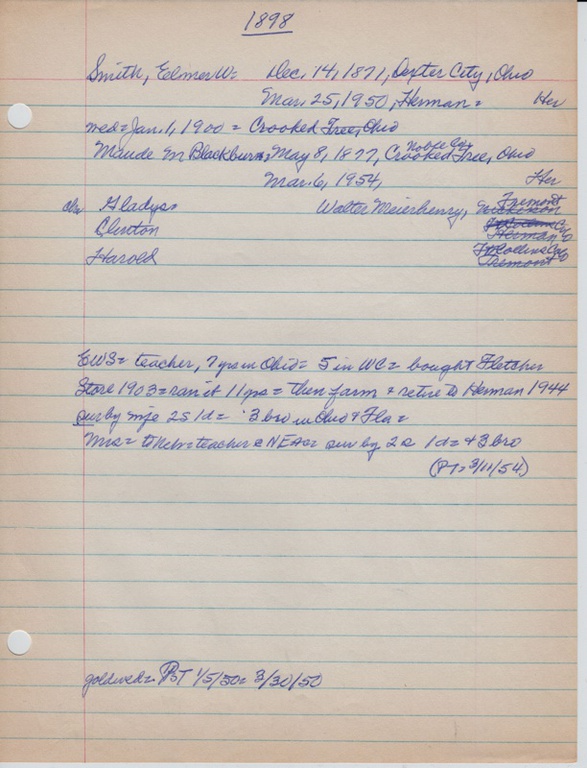 1898
Smith, Elmer W= Dec. 14, 1871, Dexter City, Ohio
Mar. 25, 1950, Herman = Her
wed = Jan. 1, 1900 = Crooked Tree, Ohio
Noble Co,
Maude M Blackburn, May 8, 1877, Crooked Tree, Ohio
Mar. 6, 1954, Her
Fremont
ch= Gladys Walter Meierhenry, Nickerson
Clinton Ft Collins Colo
Herman
Harold Ft Collins Colo
Fremont
EWS = teacher, 7 yrs in Ohio = 5 in WC = bought Fletcher
Store 1903 = ran it 11 yrs = then farm & retire to Herman 1944
sur by wife 2s 1d = 3 bro in Ohio & Fla =
Mrs = to Nebr = teacher @ NEA = sur by 2s 1d = + 3 bro
(PT = 3/11/54)
goldwed = PT 1/5/50 = 3/30/50